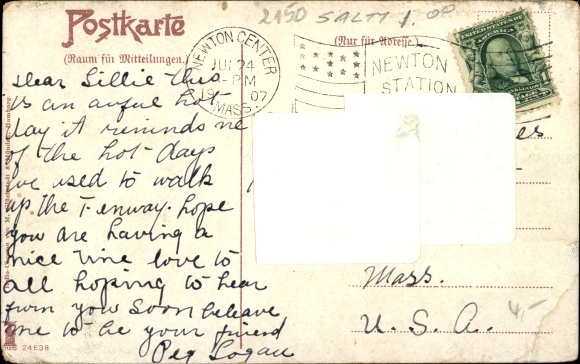 2450 SALTY 1.00
Postkarte
(Raum für Mitteilungen.)
(Nur für Adresse.)
NEWTON CENTER
JUL 24
PM
19 07
MASS.
NEWTON
STATION
UNITED STATES OF AMERICA
1
Dear Lillie this
is an awful hot
day it reminds me
of the hot days
we used to walk
up the Fenway. hope
you are having a
nice time love to
all hoping to hear
from you soon beleave
me to be your friend
Peg Logan
es
Mass.
U. S. A.
4,-
24636